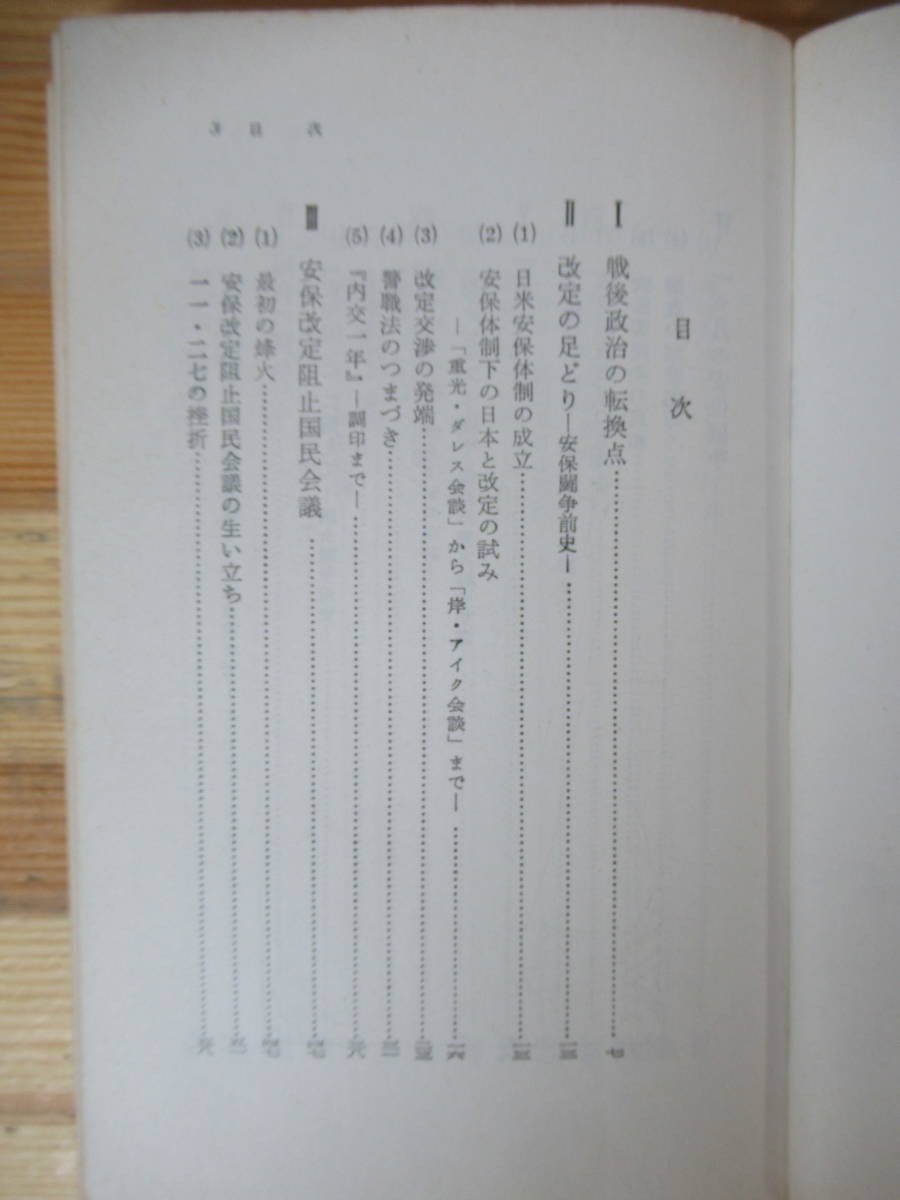 目次
Ⅰ 戦後政治の転換点………七
Ⅱ 改定の足どり—安保闘争前史—………一三
(1) 日米安保体制の成立………一三
(2) 安保体制下の日本と改定の試み
—「重光・ダレス会談」から「岸・アイク会談」まで—………一六
(3) 改定交渉の発端………
(4) 警職法のつまづき………
(5) 『内交一年』—調印まで—………
Ⅲ 安保改定阻止国民会議………四七
(1) 最初の烽火………四七
(2) 安保改定阻止国民会議の生い立ち………
(3) 一一・二七の挫折………
目次